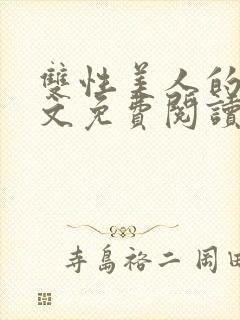 雙性美人的
文免費閱讀
寺島裕二 岡田